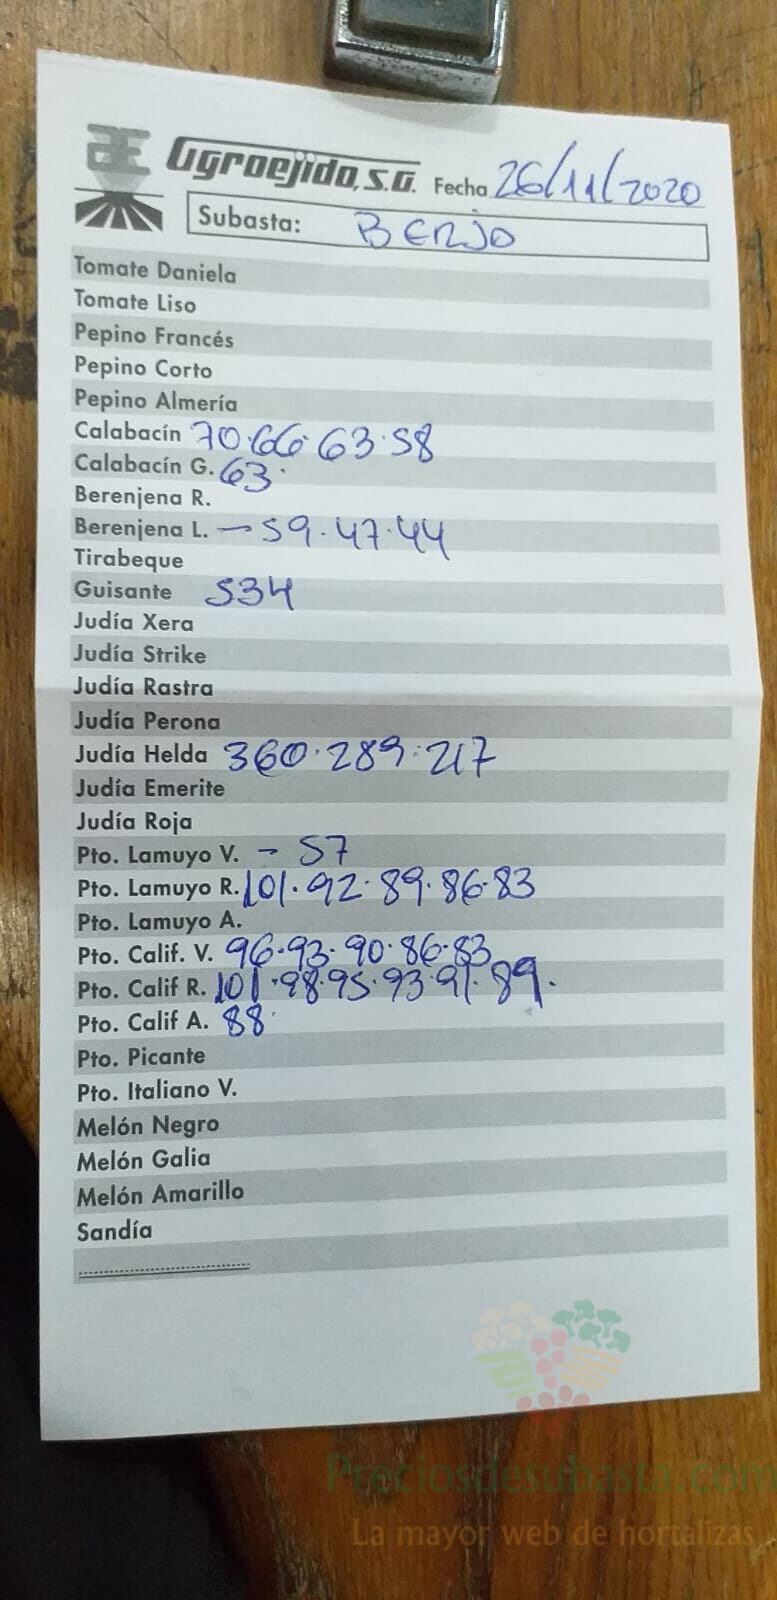 Agroejido, S.A. Fecha 26/11/2020
Subasta: BERJO
Tomate Daniela
Tomate Liso
Pepino Francés
Pepino Corto
Pepino Almería
Calabacín 70·66·63·58
Calabacín G. 63·
Berenjena R.
Berenjena L. — 59·47·44
Tirabeque
Guisante 534
Judía Xera
Judía Strike
Judía Rastra
Judía Perona
Judía Helda 360·289·217
Judía Emerite
Judía Roja
Pto. Lamuyo V. – 57
Pto. Lamuyo R. 101·92·89·86·83
Pto. Lamuyo A.
Pto. Calif. V. 96·93·90·86·83
Pto. Calif R. 101·98·95·93·91·89.
Pto. Calif A. 88·
Pto. Picante
Pto. Italiano V.
Melón Negro
Melón Galia
Melón Amarillo
Sandía
Preciosdesubasta.com
La mayor web de hortalizas